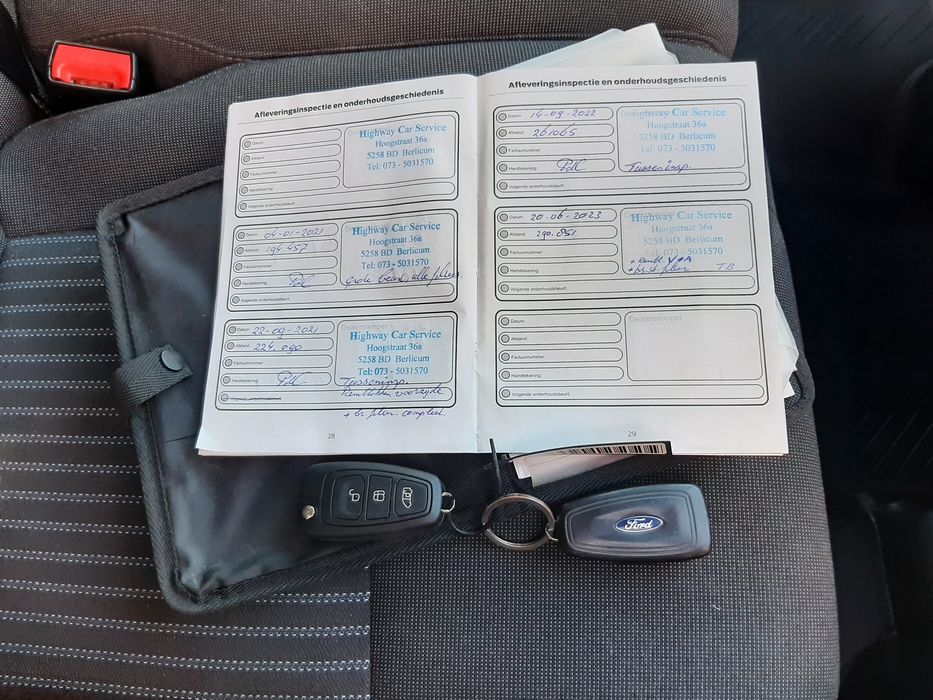 Afleveringsinspectie en onderhoudsgeschiedenis
Datum:
Afstand:
Factuurnummer:
Handtekening:
Volgende onderhoudsbeurt:
Highway Car Service
Hoogstraat 36a
5258 BD Berlicum
Tel: 073 - 5031570
Datum: 04-01-2021
Afstand: 194.457
Factuurnummer:
Handtekening:
Volgende onderhoudsbeurt:
Highway Car Service
Hoogstraat 36a
5258 BD Berlicum
Tel: 073 - 5031570
grote beurt, alle filters
Datum: 22-09-2021
Afstand: 224.090
Factuurnummer:
Handtekening:
Volgende onderhoudsbeurt:
Dealerstempel
Highway Car Service
Hoogstraat 36a
5258 BD Berlicum
Tel: 073 - 5031570
Tusseninsp.
Remblokken voorzijde
+ br. filter. compleet.
28
Afleveringsinspectie en onderhoudsgeschiedenis
Datum: 14-09-2022
Afstand: 261065
Factuurnummer:
Handtekening:
Volgende onderhoudsbeurt:
Highway Car Service
Hoogstraat 36a
5258 BD Berlicum
Tel: 073 - 5031570
Tusseninsp.
Datum: 20-06-2023
Afstand: 290.851
Factuurnummer:
Handtekening:
Volgende onderhoudsbeurt:
Highway Car Service
Hoogstraat 36a
5258 BD Berlicum
Tel: 073 - 5031570
+ Rembl. V+A
TB
Datum:
Afstand:
Factuurnummer:
Handtekening:
Volgende onderhoudsbeurt:
Dealerstempel
29
Ford